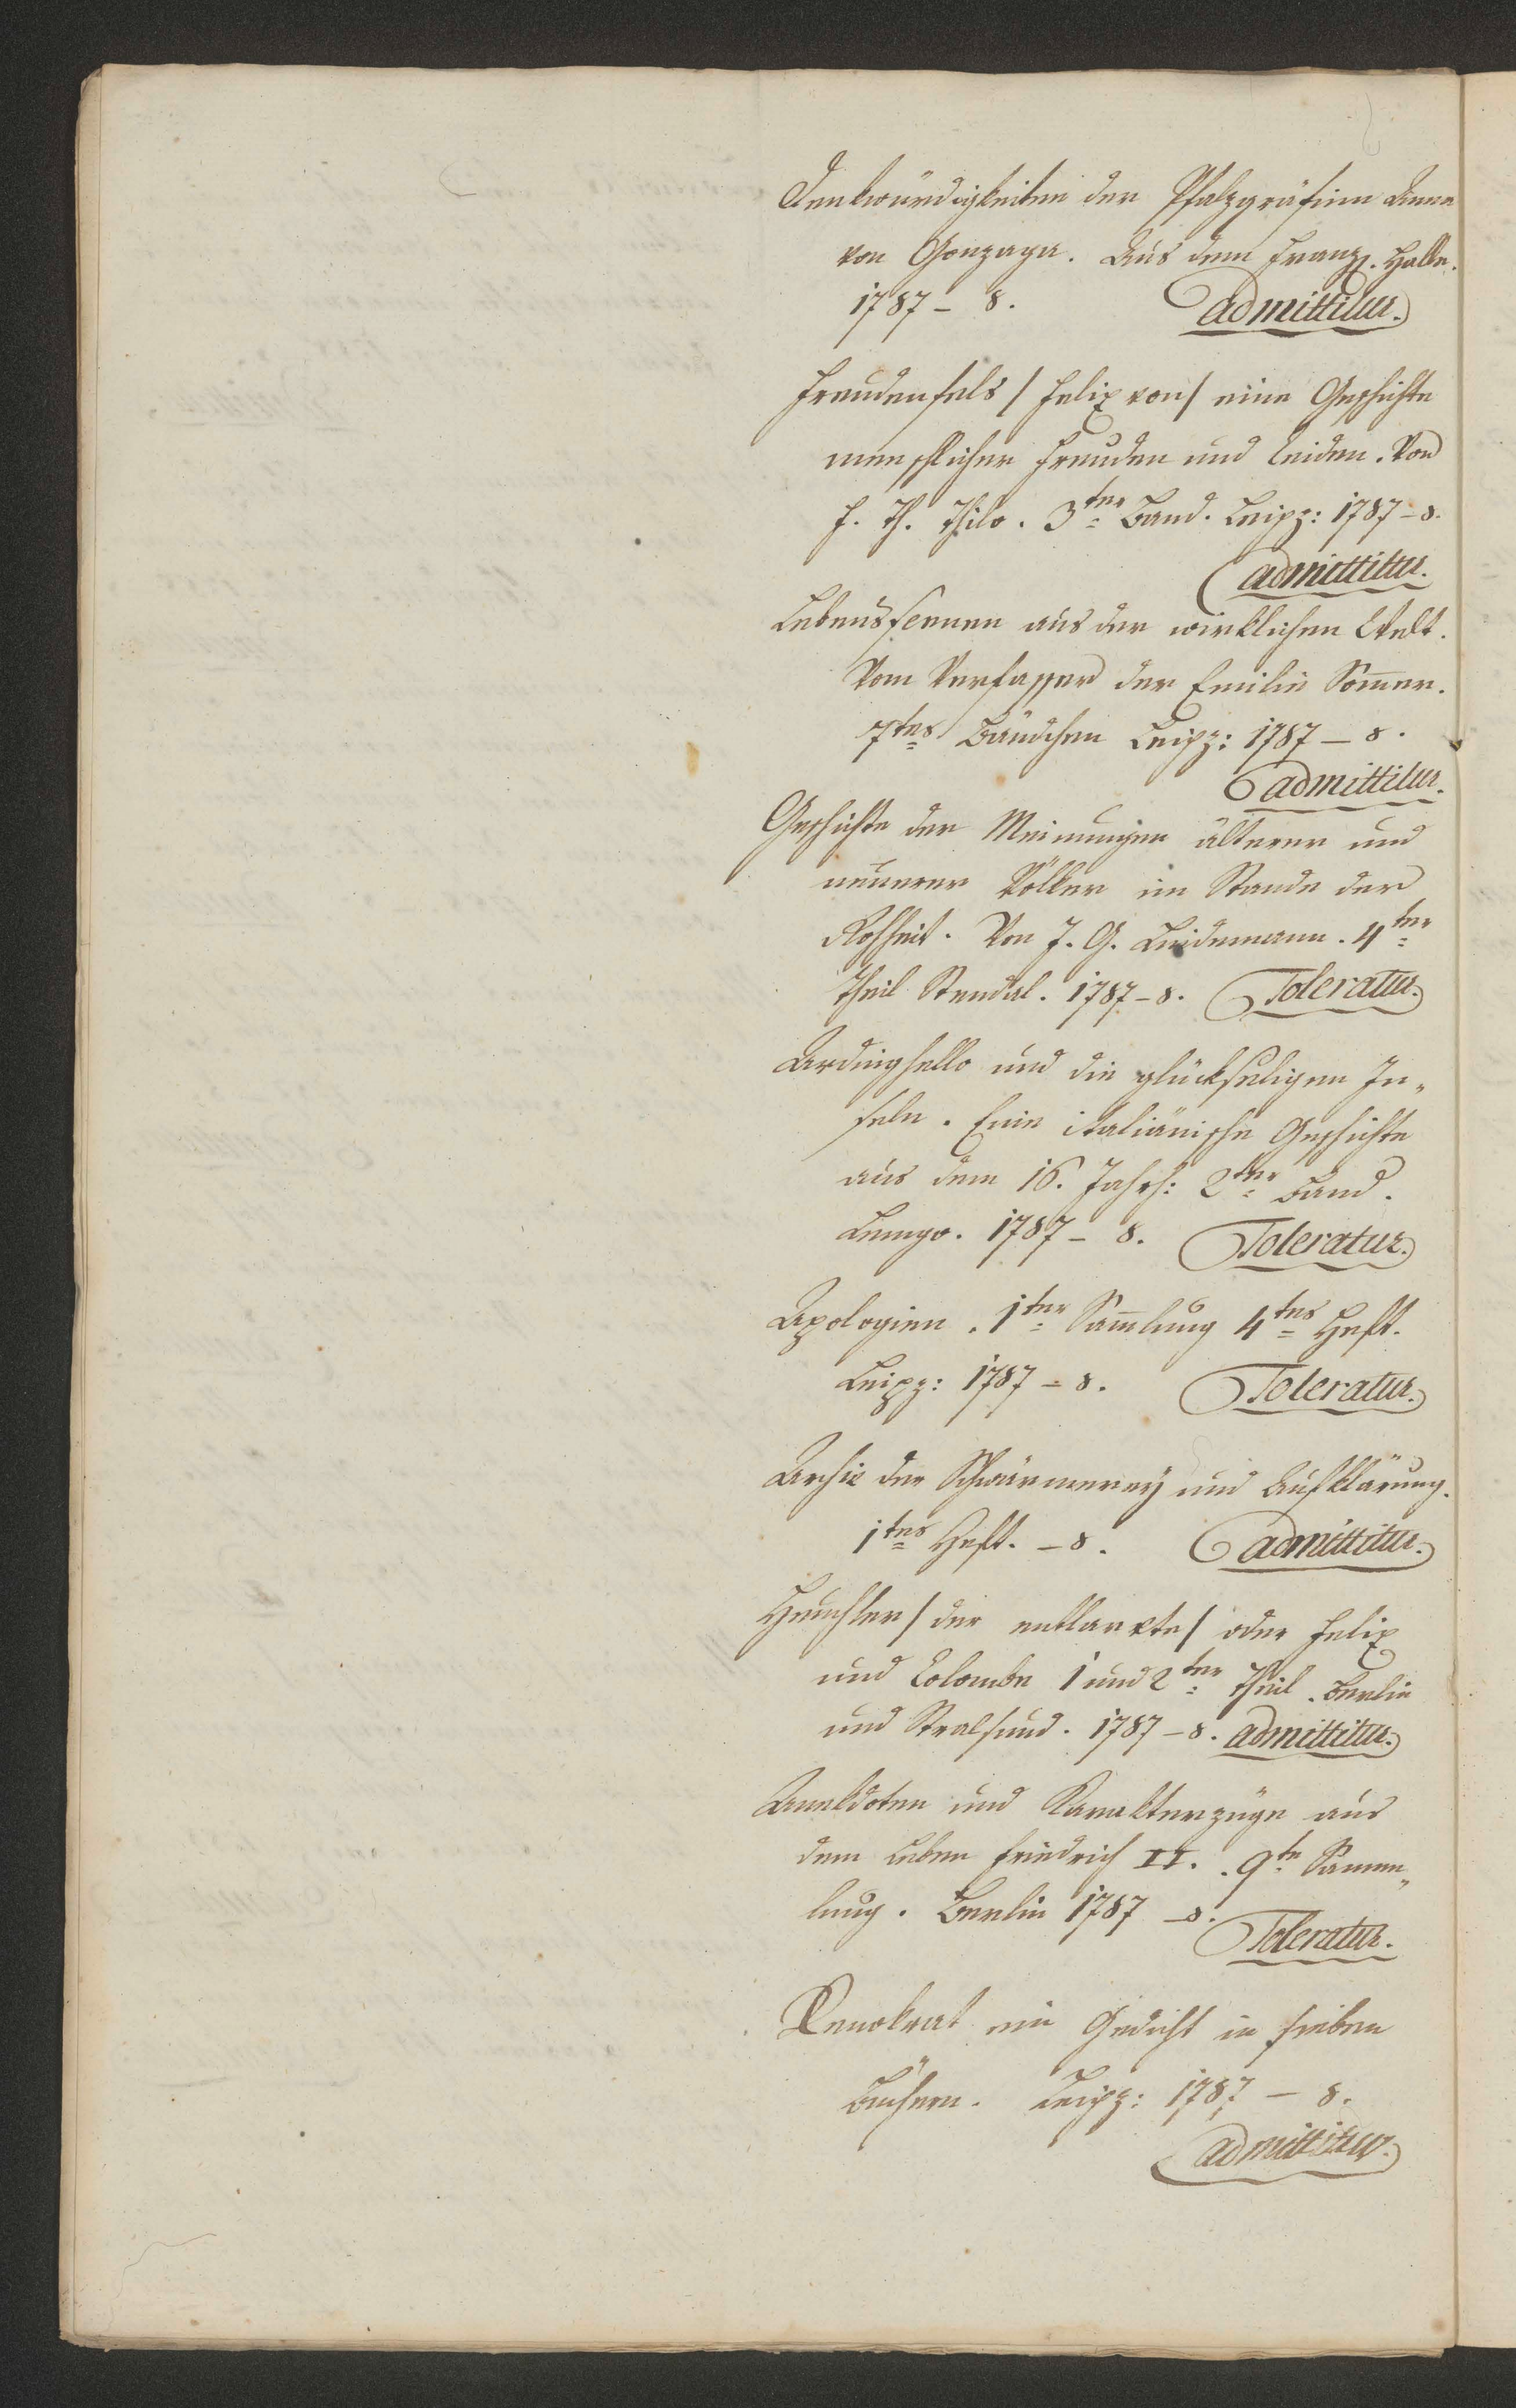 Denkwürdigkeiten der Pfalzgräfinn Anna
von Gonzaga. Aus dem Franz. Halle.
1787 – 8. admittitur.
Freudenfels / Felix von / eine Geschichte
menschlicher Freuden und Leiden. Von
F. Th. Thilo. 3ter Band. Leipz: 1787 – 8.
admittitur.
Lebensscenen aus der wirklichen Welt.
Vom Verfasser der Emilie Som̄er.
7tes Bändchen Leipz: 1787 – 8.
admittitur.
Geschichte der Meinungen älterer und
neuerer Völker im Stande der
Rohheit. Von J. G. Lindemann. 4ter
Theil Stendal. 1787 – 8. Toleratur.
Ardinghello und die glückseligen In„
seln. Eine italiänische Geschichte
aus dem 16. Jahrh: 2ter Band.
Lemgo. 1787 – 8. Toleratur.
Apologien. 1ter Sam̄lung 4tes Heft.
Leipz: 1787 – 8. Toleratur.
Archiv der Schwärmerey und Aufklärung.
1tes Heft. – 8. admittitur.
Heuchler / der entlarvte / oder Felix
und Colombe 1 und 2ter Theil. Berlin
und Stralsund. 1787 – 8. admittitur.
Anekdoten und Karakterzüge aus
dem Leben Friedrich II. . 9te Samm„
lung. Berlin 1787 – 8.
Toleratur.
ein Gedicht in sieben
Büchern. Leipz: 1787 – 8.
admittitur.